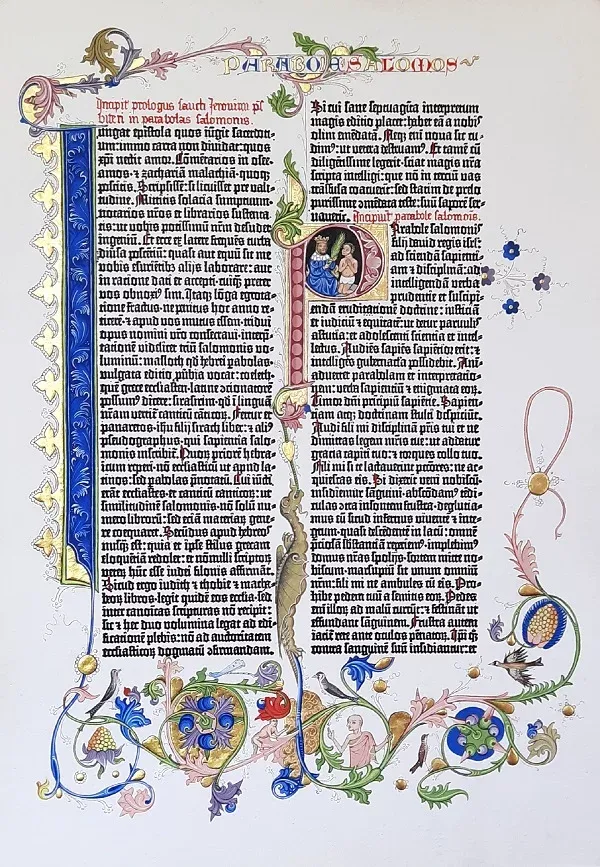 PARABOLE SALOMOIS
Incipit prologus sancti Jeronimi p̄s
biteri in parabolas salomonis.
Jungat epistola quos iūgit sacerdoti-
um: immo carta non dividat: quos
xp̄i nectit amor. Cōmētarios in osee.
amos. ⁊ zachariā malachiā. quoqꝫ
poscitis. Scripsissē: si licuisset pre vali-
tudine. Mittitis solacia sumptuum.
notarios nr̄os et librarios sustenta-
tis: ut vobis potissimū nr̄m desudet
ingeniū. Et ecce ex latere frequēs turba
diūsa poscētiū: quasi aut equū sit me
vobis esuriētibꝰ alijs laborare: aut
in ratione dati et accepti. cuiqꝫ preter
vos obnoxiꝰ sim. Itaqꝫ lōga egrota-
tione fractus. ne penitus hoc anno re-
ticerē ⁊ apud vos mutus essem. tridui
opus nomini vr̄o consecraui. interp̄-
tationē videlicet triū salomonis vo-
luminū: masloth qd̄ hebrei parabolas.
vulgata editio ꝓūbia vocat: coeleth.
quē grece ecclesiasten. latine cōcionatorē
possumꝰ dicere: sirasirim. qd̄ ī linguā
nr̄am vertit̄ canticū canticoꝝ. Fertur et
panaretos. ihū filij sirach liber: ⁊ aliꝰ
pseudographus. qui sapientia salo-
monis inscribit̄. Quoꝝ priorē hebra-
icum reperi. nō ecclesiasticū ut apud la-
tinos: sed parabolas p̄notatū. Cui iūcti
erāt ecclesiastes. et canticū canticoꝝ: ut
similitudinē salomonis. nō solū nu-
mero librorū: sed eciā materiaꝝ gene-
re coequaret. Secūdus apud hebreos
nusqꝫ est: quia et ipse stilus grecam
eloquētiā redolet: et nōnulli scriptoꝝ
veteꝝ hūc esse iudei filonis affirmāt.
Sicud ergo iudith ⁊ thobie ⁊ macha-
beoꝝ libros. legit quidē eos ecclesia. sed
inter canoicas scripturas nō recipit:
sic ⁊ hec duo volumina legat ad edi-
ficationē plebis: nō ad auctoritatem
ecclesiasticoꝝ dogmatū ꝯfirmandam.
Si cui sane septuagīta interpretum
magis editio placet: habet eā a nobis
olim emēdatā. Neqꝫ eni nova sic cu-
dimꝰ: ut vetera destruamꝰ. Et tamē cū
diligētissime legerit. sciat magis nr̄a
scripta intelligi: que nō in terciū vas
trāsfusa coacuerīt: sed statim de prelo
purissime ꝯmēdata teste: suū saporē ser-
vauerīt. Incipiūt parabole salomonis.
Parabole salomonis
filij dauid regis isrl̄:
ad sciendā sapienti-
am ⁊ disciplinā: ad
intelligendā verba
prudentie et suscipi-
endā eruditationē doctrine: iusticiā
et iudiciū ⁊ equitatē: ut detur paruulis
astucia: et adolescenti scientia et intel-
lectus. Audiēs sapiēs sapiētior erit: ⁊
intelligēs gubernacla possidebit. Ani-
aduertet parabolam et interpretatio-
nem: verba sapientiū ⁊ enigmata eoꝝ.
Timor dn̄i principiū sapiētie. Sapien-
tiam atqꝫ doctrinam stulti despiciūt.
Audi fili mi disciplinā pr̄is tui et ne
dimittas legem mr̄is tue: ut addatur
gracia capiti tuo: ⁊ torques collo tuo.
Fili mi si te lactauerint pctōres: ne ac-
quiescas eis. Si dixerīt veni nobiscū.
insidiemur sāguini. abscōdamꝰ tēdi-
culas ꝯtra insontem frustra. deglutia-
mus eū sicud infernus viuentē ⁊ inte-
grum. quasi descēdentē in lacū: omnē
p̄ciosā sbstanciā reperiemꝰ. implebimꝰ
domus nr̄as spolijs. sortem mitte no-
biscum. marsupiū sit unum omniū
nr̄m: fili mi ne ambules cū eis. Pro-
hibe pedem tuū a semitis eoꝝ. Pedes
eni illoꝝ ad malū currūt: ⁊ festināt ut
effundant sāguinem. Frustra autem
iacit̄ rete ante oculos pēnatoꝝ. Ip̄i qꝫ
contra sanguinē suū insidiantur: et